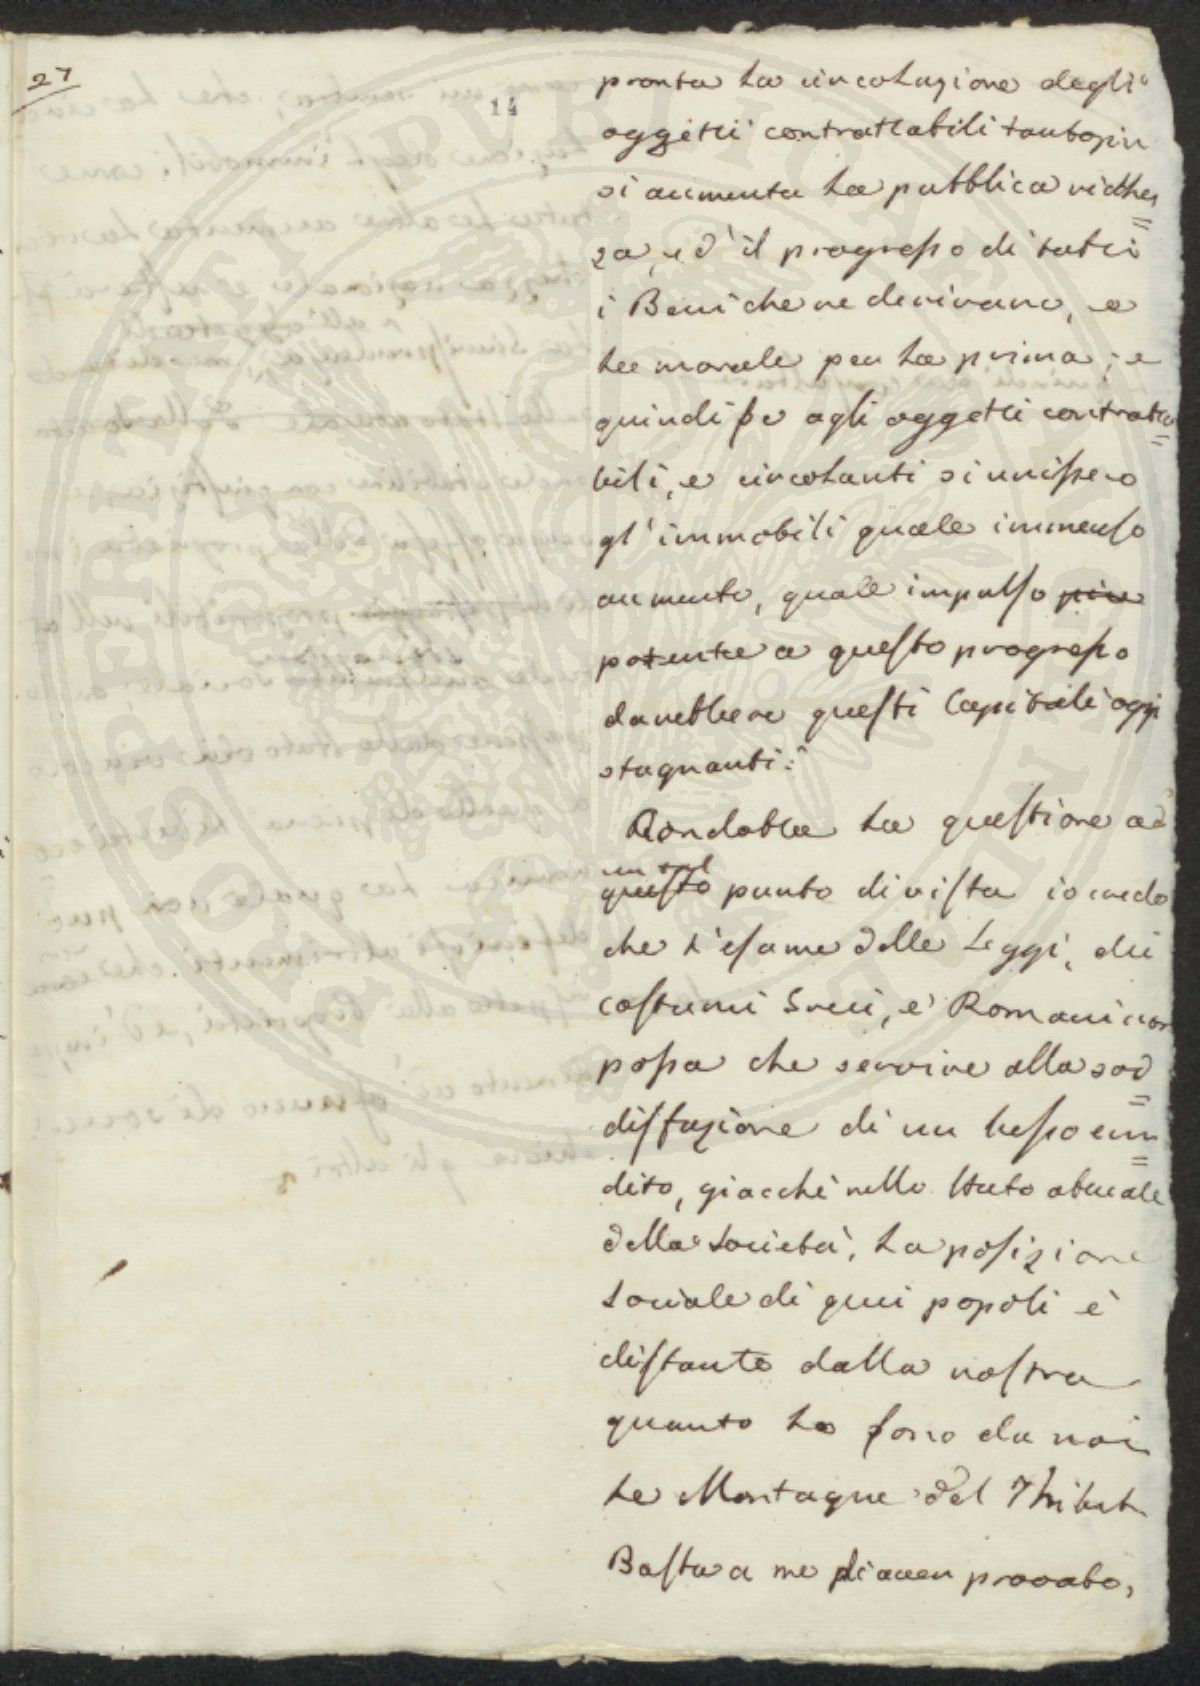 27
14
pronta la circolazione degli
oggetti contrattabili tantopiu
si aumenta la pubblica richez
=
za, ed il progresso di tutti
i Beni che ne derivano, e
la morale per la prima; e
quindi se agli oggetti contratta
=
bili, e circolanti si unissero
gl'immobili quale immenso
aumento, quale impulso più
potente a questo progresso
darebbero questi Capitali oggi
stagnanti?
Ridotta la questione ad
un sol
questo punto di vista io credo
che l'esame delle Leggi, dei
costumi Greci, e Romani non
possa che servire alla sod
=
disfazione di un lusso eru
=
dito, giacchè nello stato attuale
della Società, la posizione
sociale di quei popoli è
distante dalla nostra
quanto lo sono da noi
le Montagne del Thibet
Basta a me di aver provato,
PROSPERITATI PUBLICAE